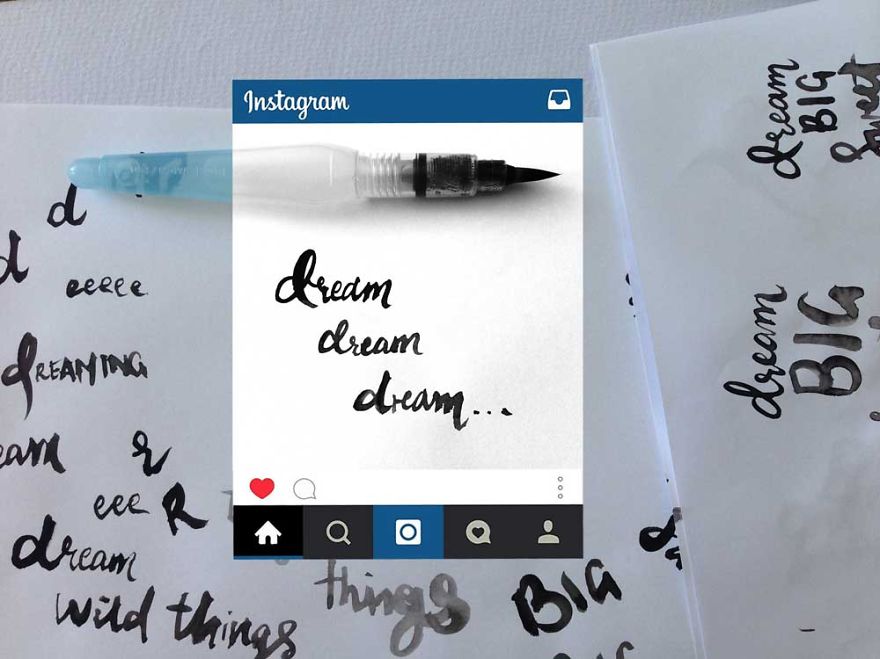 Instagram
dream
dream
dream...
d
d
eeeee
dREAMING
eam
eee R
dream
wild things
things
BIG
dream
BIG
sweet
dream
BIG